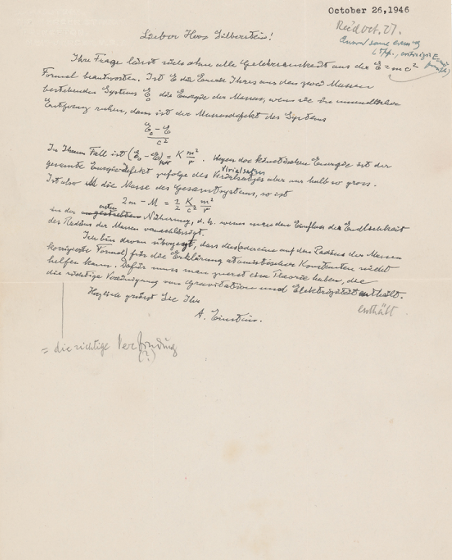 October 26, 1946
Rec'd Oct. 27.
Lieber Herr Silberstein!
Ihre Frage lässt sich ohne alle Gelehrsamkeit aus der E = mc²
Formel beantworten. Ist E die Energie Ihres aus den zwei Massen
bestehenden Systems, E₀ die Energie der Massen, wenn sie in unendlicher
Entfernung ruhen, dann ist der Massendefekt des Systems
E₀ – E / c²
In Ihrem Fall ist (E₀ – E)pot = K m²/r. Wegen der kinetischen Energie ist der
gesamte Energiedefekt zufolge des Virialsatzes aber nur halb so gross.
Ist also M die Masse des Gesamtsystems, so ist
2m – M = 1/2 K/c² m²/r
in erster Näherung, d. h. wenn man den Einfluss der Endlichkeit
des Radius der Massen vernachlässigt.
Ich bin davon überzeugt, dass die auf den Radius der Massen
Formel für die Erklärung atomistischer Konstanten nicht
helfen kann. Dafür muss man zuerst eine Theorie haben, die
die richtige Vereinigung von Gravitation und Elektrizität enthält.
enthält.
Herzlich grüsst Sie Ihr
A. Einstein.
= die richtige Verbindung
(?)